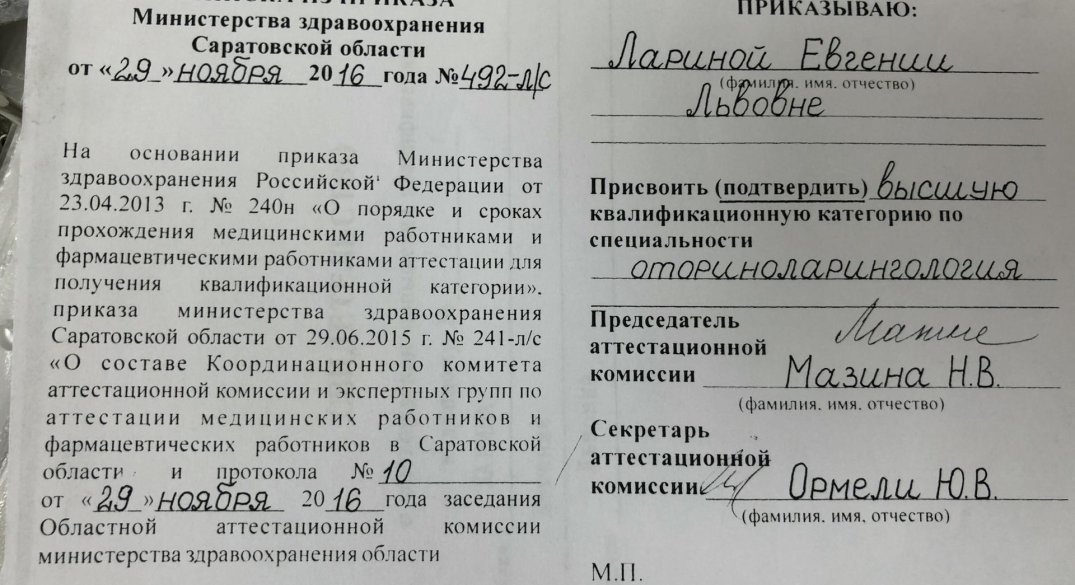 ИЗ ПРИКАЗА
Министерства здравоохранения
Саратовской области
от «29» ноября 2016 года №492-л/с
На основании приказа Министерства
здравоохранения Российской Федерации от
23.04.2013 г. № 240н «О порядке и сроках
прохождения медицинскими работниками и
фармацевтическими работниками аттестации для
получения квалификационной категории»,
приказа министерства здравоохранения
Саратовской области от 29.06.2015 г. № 241-л/с
«О составе Координационного комитета
аттестационной комиссии и экспертных групп по
аттестации медицинских работников и
фармацевтических работников в Саратовской
области и протокола № 10
от «29» ноября 2016 года заседания
Областной аттестационной комиссии
министерства здравоохранения области
ПРИКАЗЫВАЮ:
Лариной Евгении
(фамилия, имя, отчество)
Львовне
Присвоить (подтвердить) высшую
квалификационную категорию по
специальности
оториноларингология
Председатель
аттестационной
комиссии Мазина Н.В.
(фамилия, имя, отчество)
Секретарь
аттестационной
комиссии Ормели Ю.В.
(фамилия, имя, отчество)
М.П.